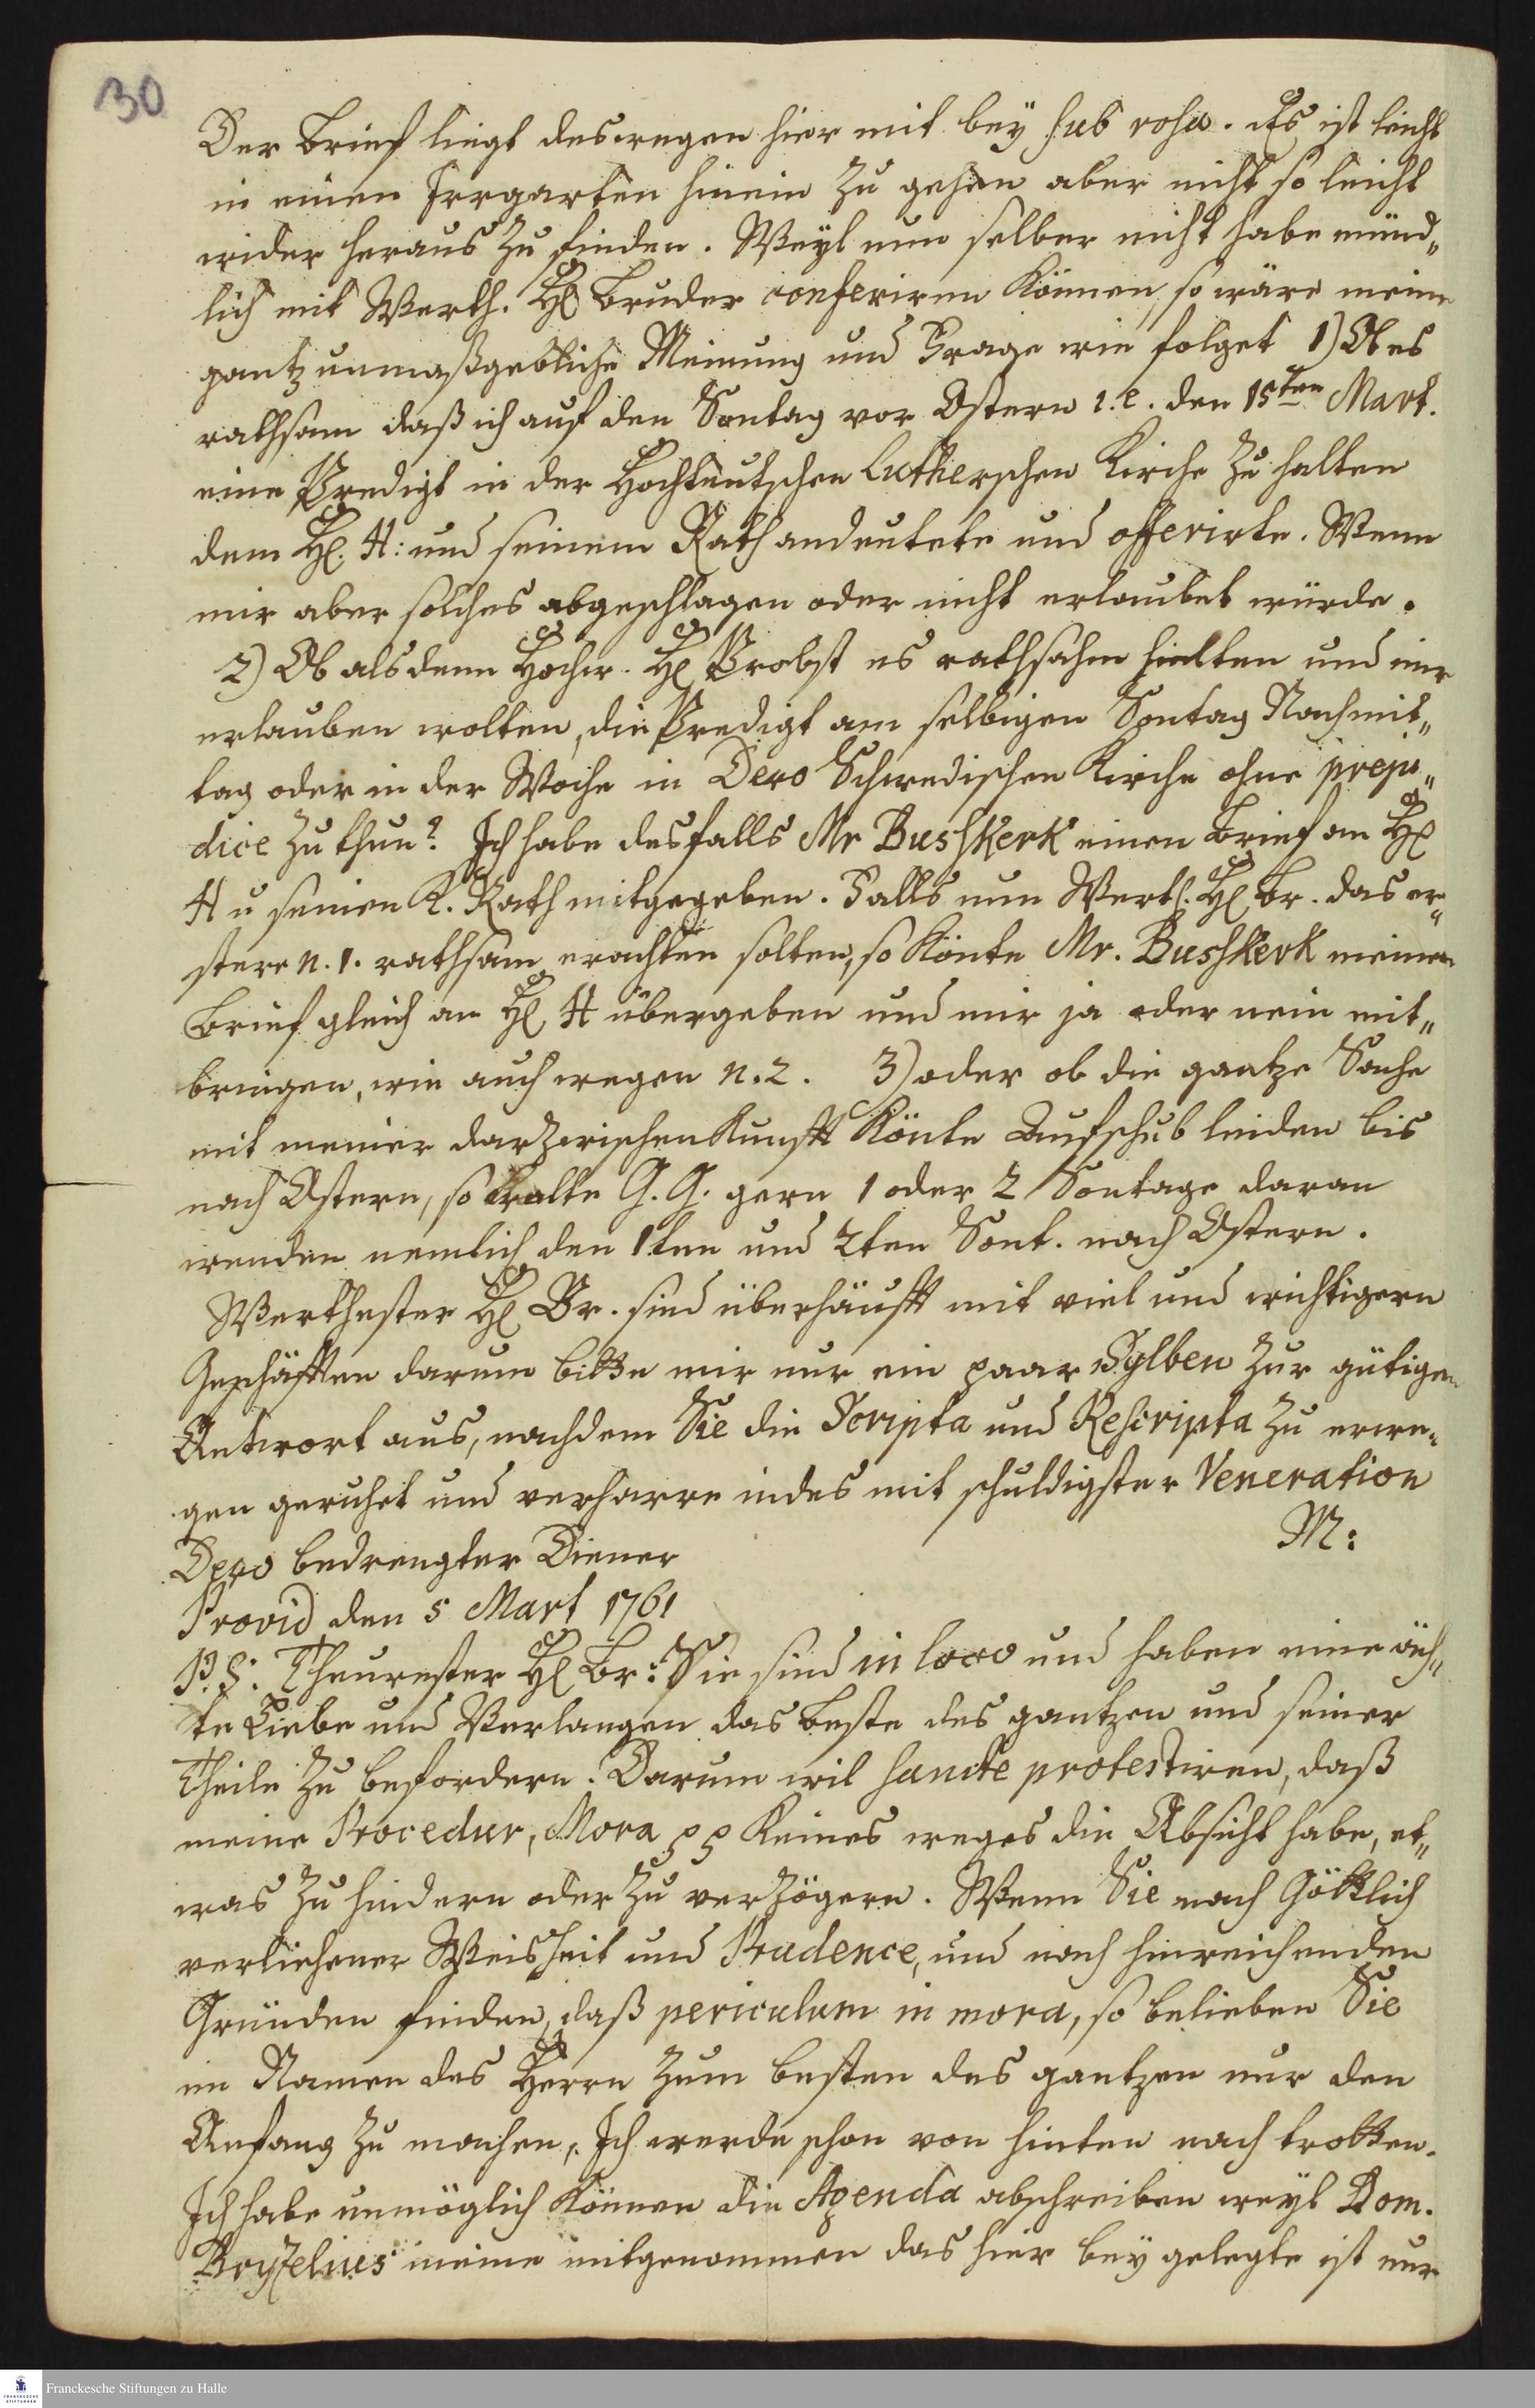 30
Der Brief liegt deswegen hier mit bey sub rosa. Es ist leicht
in einen Irrgarten hinein zu gehen aber nicht so leicht
wider heraus zu finden. Weyl nun selber nicht habe münd„
lich mit Werth. H. Bruder conferiren können, so wäre meine
gantz unmaßgebliche Meinung und Frage wie folget 1) Ob es
rathsam daß ich auf den Sontag vor Ostern i.e. den 15ten Mart.
eine Predigt in der Hochteutschen Lutherschen Kirche zu halten
dem H. H: und seinem Rath andeutete und offerirte. Wenn
mir aber solches abgeschlagen oder nicht erlaubet würde.
2) Ob alsdenn Hochw. H. Probst es rathsahm hielten und mir
erlauben wolten, die Predigt am selbigen Sontag Nachmit„
tag oder in der Woche in Dero Schwedischen Kirche ohne preju„
dice zu thun? Ich habe desfalls Mr Bushkerk einen Brief an H.
H u seinen K. Rath mitgegeben. Falls nun Werth. H. Br. das er„
stere n. 1. rathsam erachten solten, so könte Mr. Bushkerk meinen
Brief gleich an H. H übergeben und mir ja oder nein mit„
bringen, wie auch wegen n. 2. 3) oder ob die gantze Sache
mit meiner darzwischenkunfft könte Aufschub leiden bis
nach Ostern, so wolte G. G. gern 1 oder 2 Sontage daran
wenden nemlich den 1ten und 2ten Sont. nach Ostern.
Werthester H. Br. sind überhäufft mit viel und wichtigern
Geschäfften darum bitte mir nur ein paar Sylben zur gütigen
Antwort aus, nachdem Sie die Scripta und Rescripta zu erwe„
gen geruhet und verharre indes mit schuldigster Veneration
Dero bedrengter Diener M:
Provid den 5 Mart 1761
P. S: Theurester H. Br: Sie sind in loco und haben eine äch„
te Liebe und Verlangen das beste des gantzen und seiner
Theile zu befordern. Darum wil sancte protestiren, daß
meine Procedur, Mora pp keines weges die Absicht habe, et„
was zu hindern oder zu verzögern. Wenn Sie nach Göttlich
verliehener Weisheit und Prudence, und nach hinreichenden
Gründen finden, daß periculum in mora, so belieben Sie
im Namen des Herrn zum besten des gantzen nur den
Anfang zu machen, Ich werde schon von hinten nach trotten.
Ich habe unmöglich können die Agenda abschreiben weyl Dom.
Bryzelius meine mitgenommen das hier bey gelegte ist nur
Franckesche Stiftungen zu Halle